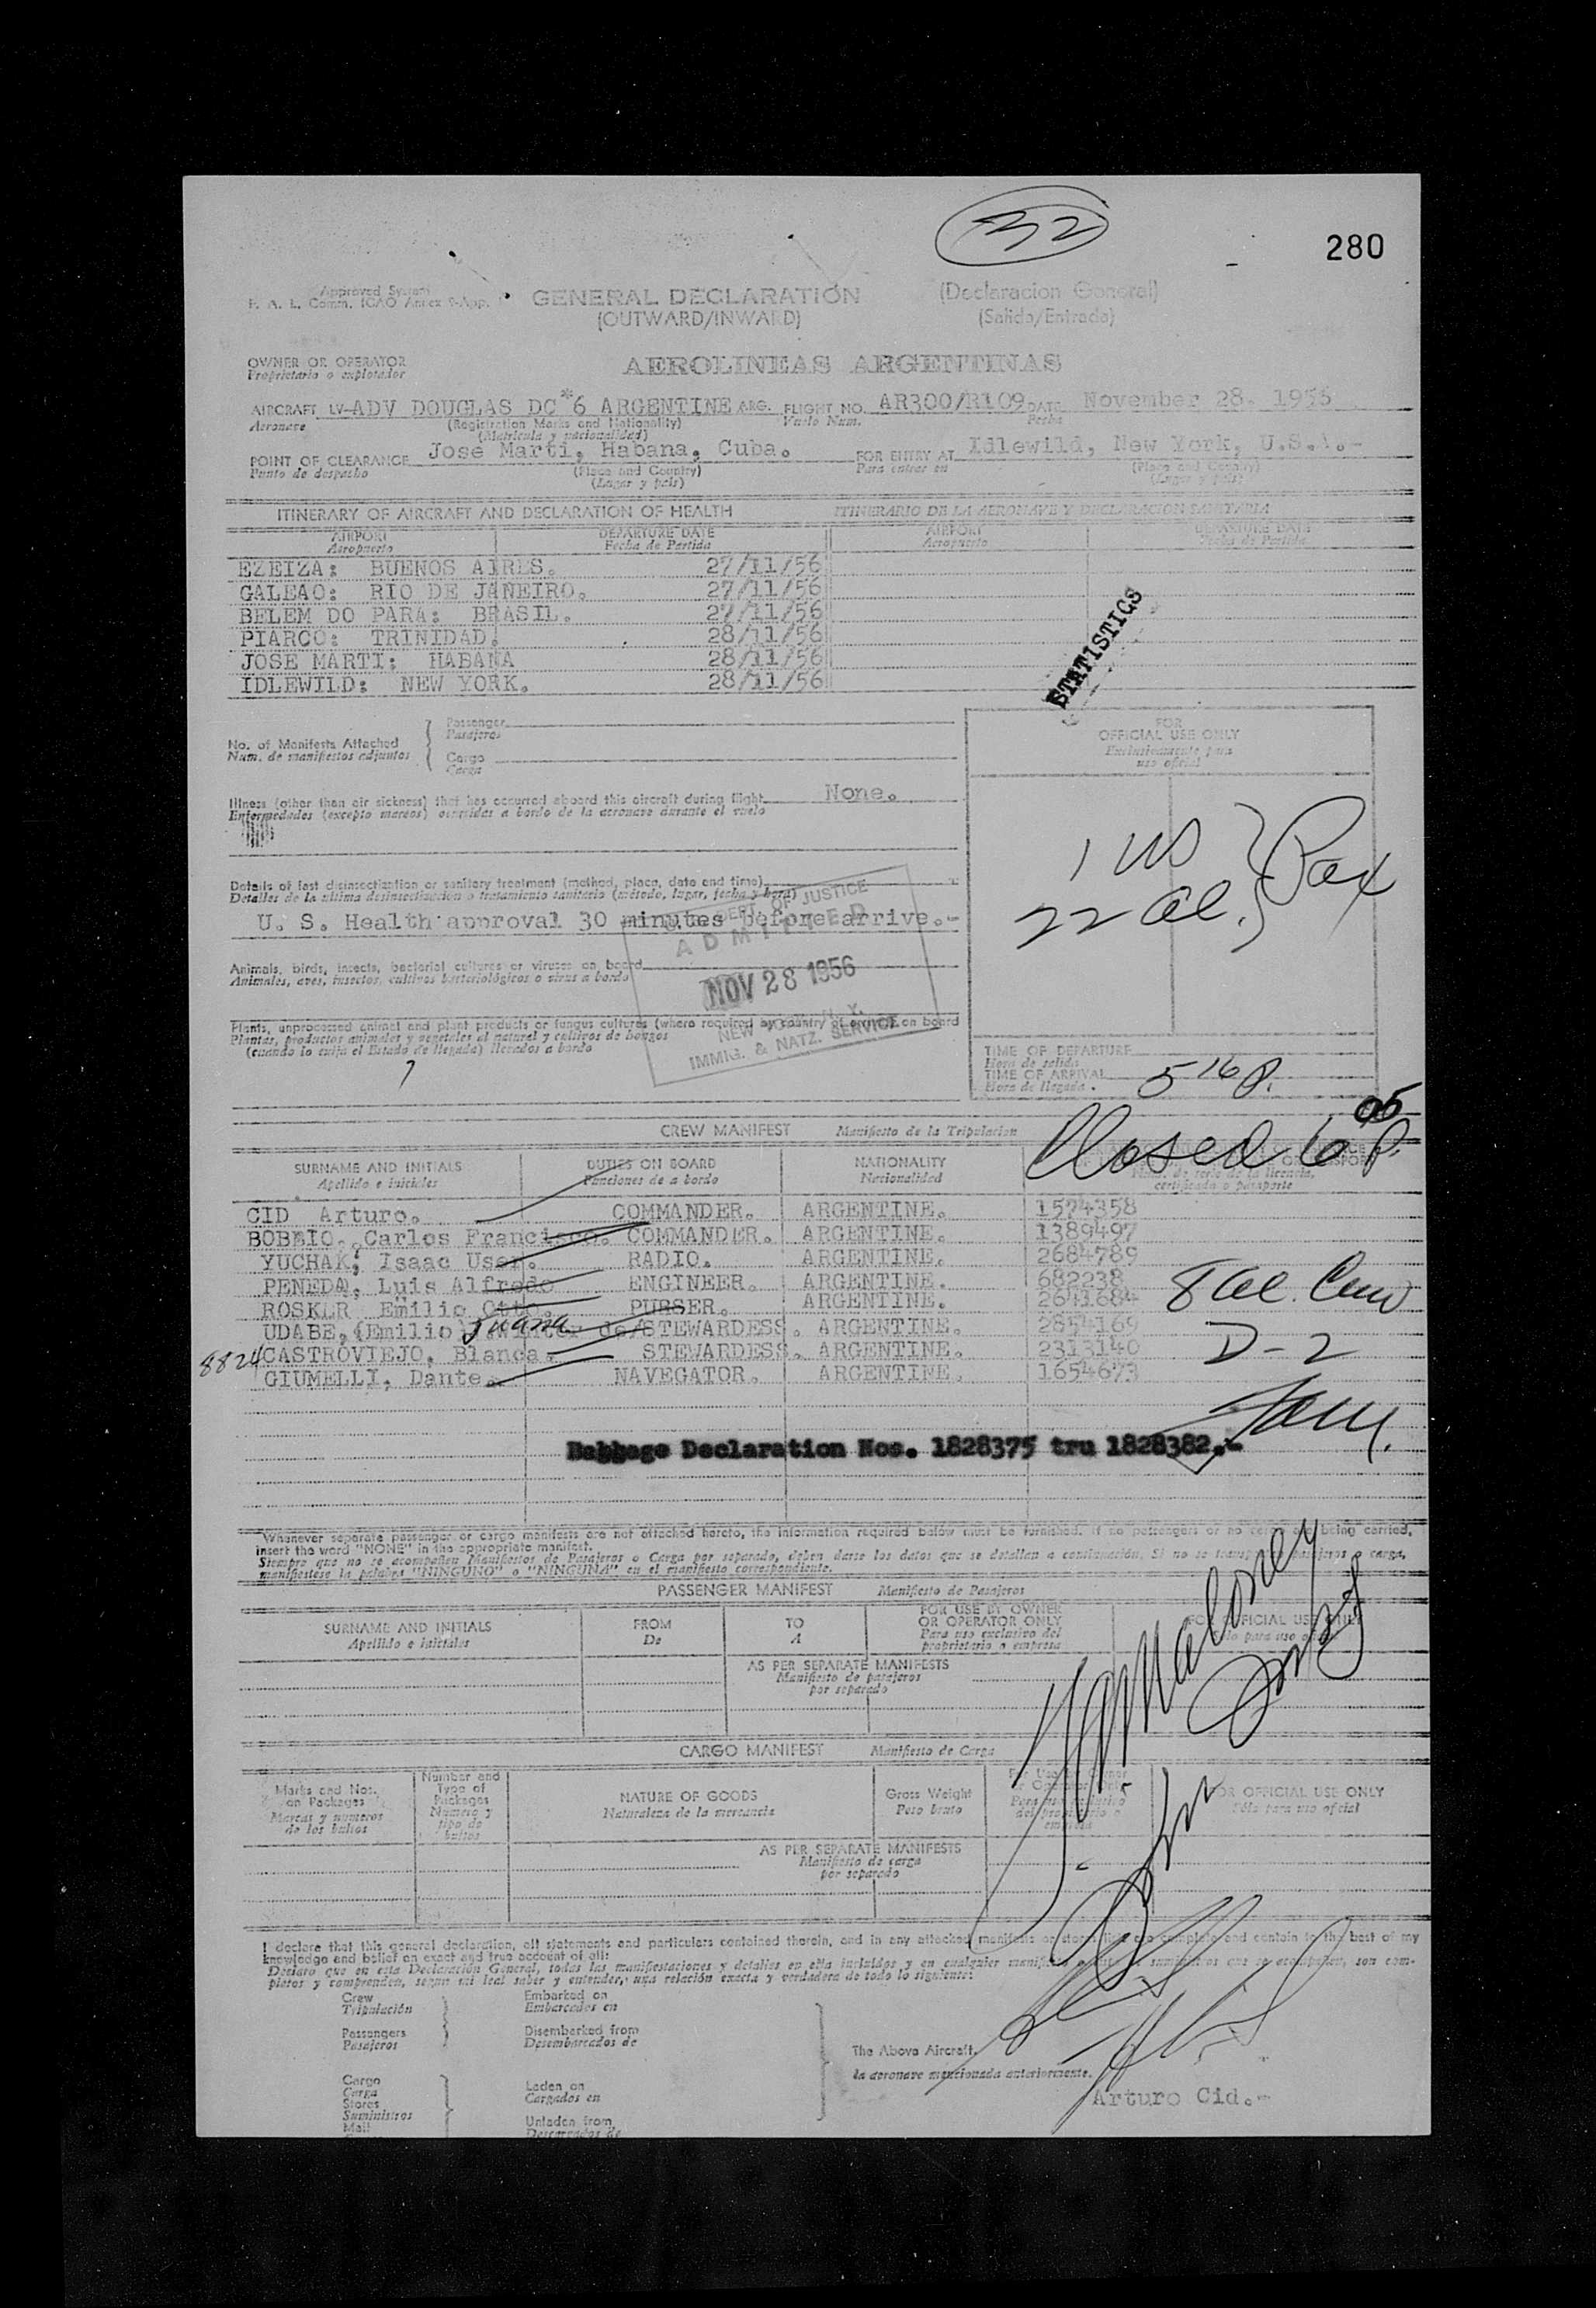 32
280
Approved System
F. A. L. Comm. ICAO Annex 9-App.
GENERAL DECLARATION (Declaracion General)
(OUTWARD/INWARD) (Salida/Entrada)
OWNER OR OPERATOR AEROLINEAS ARGENTINAS
Proprietario o explotador
AIRCRAFT LV-ADV DOUGLAS DC*6 ARGENTINE ARG. FLIGHT NO. AR300/R109 DATE November 28. 1956
Aeronave (Registration Marks and Nationality) Vuelo Num. Fecha
(Matricula y nacionalidad)
POINT OF CLEARANCE Jose Marti, Habana, Cuba. FOR ENTRY AT Idlewild, New York, U.S.A.-
Punto de despacho (Place and Country) Para entrar en (Place and Country)
(Lugar y país) (Lugar y país)
ITINERARY OF AIRCRAFT AND DECLARATION OF HEALTH ITINERARIO DE LA AERONAVE Y DECLARACION SANITARIA
AIRPORT DEPARTURE DATE AIRPORT DEPARTURE DATE
Aeropuerto Fecha de Partida Aeropuerto Fecha de Partida
EZEIZA: BUENOS AIRES. 27/11/56
GALEAO: RIO DE JANEIRO. 27/11/56
BELEM DO PARA: BRASIL. 27/11/56
PIARCO: TRINIDAD. 28/11/56
JOSE MARTI: HABANA 28/11/56
IDLEWILD: NEW YORK. 28/11/56
STATISTICS
No. of Manifests Attached
Num. de manifiestos adjuntos
Passenger
Pasajeros
Cargo
Carga
FOR
OFFICIAL USE ONLY
Exclusivamente para
uso oficial
Illness (other than air sickness) that has occurred aboard this aircraft during flight None.
Enfermedades (excepto mareos) ocurridas a bordo de la aeronave durante el vuelo
1 US
22 al. } Pax
Details of last disinsectization or sanitary treatment (method, place, date and time)
Detalles de la ultima desinsectizacion o tratamiento sanitario (método, lugar, fecha y hora)
U. S. Health approval 30 minutes before arrive.-
DEPT. OF JUSTICE
ADMITTED
NOV 28 1956
NEW YORK, N.Y.
IMMIG. & NATZ. SERVICE
Animals, birds, insects, bacterial cultures or viruses on board
Animales, aves, insectos, cultivos bacteriológicos o virus a bordo
Plants, unprocessed animal and plant products or fungus cultures (where required by country of arrival) on board
Plantas, productos animales y vegetales al natural y cultivos de hongos
(cuando lo exija el Estado de llegada) llevados a bordo
TIME OF DEPARTURE
Hora de salida
TIME OF ARRIVAL 5 16 P.
Hora de llegada
Closed 6 05 P.
CREW MANIFEST Manifiesto de la Tripulacion
SURNAME AND INITIALS DUTIES ON BOARD NATIONALITY
Apellido e iniciales Funciones de a bordo Nacionalidad
certificada o pasaporte
CID Arturo. COMMANDER. ARGENTINE. 1574358
BOBBIO, Carlos Francisco. COMMANDER. ARGENTINE. 1389497
YUCHAK, Isaac User. RADIO. ARGENTINE. 2684789
PENEDA, Luis Alfredo ENGINEER. ARGENTINE. 682238
ROSKER Emilio Otto. PURSER. ARGENTINE. 2641684
UDABE, (Emilio) Juana STEWARDESS. ARGENTINE. 2854169
8824 CASTROVIEJO, Blanca. STEWARDESS. ARGENTINE. 2313140
GIUMELLI, Dante. NAVEGATOR. ARGENTINE. 1654673
8 al. Crew
D-2
Baggage Declaration Nos. 1828375 tru 1828382.-
Whenever separate passenger or cargo manifests are not attached hereto, the information required below must be furnished. If no passengers or no cargo are being carried,
insert the word "NONE" in the appropriate manifest.
Siempre que no se acompañen Manifiestos de Pasajeros o Carga por separado, deben darse los datos que se detallan a continuación. Si no se transportan pasajeros o carga,
manifiestese la palabra "NINGUNO" o "NINGUNA" en el manifiesto correspondiente.
PASSENGER MANIFEST Manifiesto de Pasajeros
SURNAME AND INITIALS FROM TO FOR USE BY OWNER OR OPERATOR ONLY FOR OFFICIAL USE ONLY
Apellido e iniciales De A Para uso exclusivo del propietario o empresa
AS PER SEPARATE MANIFESTS
Manifiesto de pasajeros
por separado
CARGO MANIFEST Manifiesto de Carga
Marks and Nos. on Packages Number and Type of Packages NATURE OF GOODS Gross Weight FOR OFFICIAL USE ONLY
Marcas y numeros de los bultos Numero y tipo de bultos Naturaleza de la mercancia Peso bruto Sólo para uso oficial
AS PER SEPARATE MANIFESTS
Manifiesto de carga
por separado
I declare that this general declaration, all statements and particulars contained therein, and in any attached manifests are complete and contain to the best of my
knowledge and belief an exact and true account of all:
Declaro que en esta Declaración General, todas las manifestaciones y detalles en ella incluidos y en cualquier manifiesto que se acompañan, son com-
pletos y comprenden, segun mi leal saber y entender, una relación exacta y verdadera de todo lo siguiente:
Crew Embarked on
Tripulación Embarcados en
Passengers Disembarked from
Pasajeros Desembarcados de
The Above Aircraft.
la aeronave mencionada anteriormente.
Cargo Laden on
Carga Cargados en
Stores
Suministros Unladen from
Mail Descargados de
Arturo Cid.-